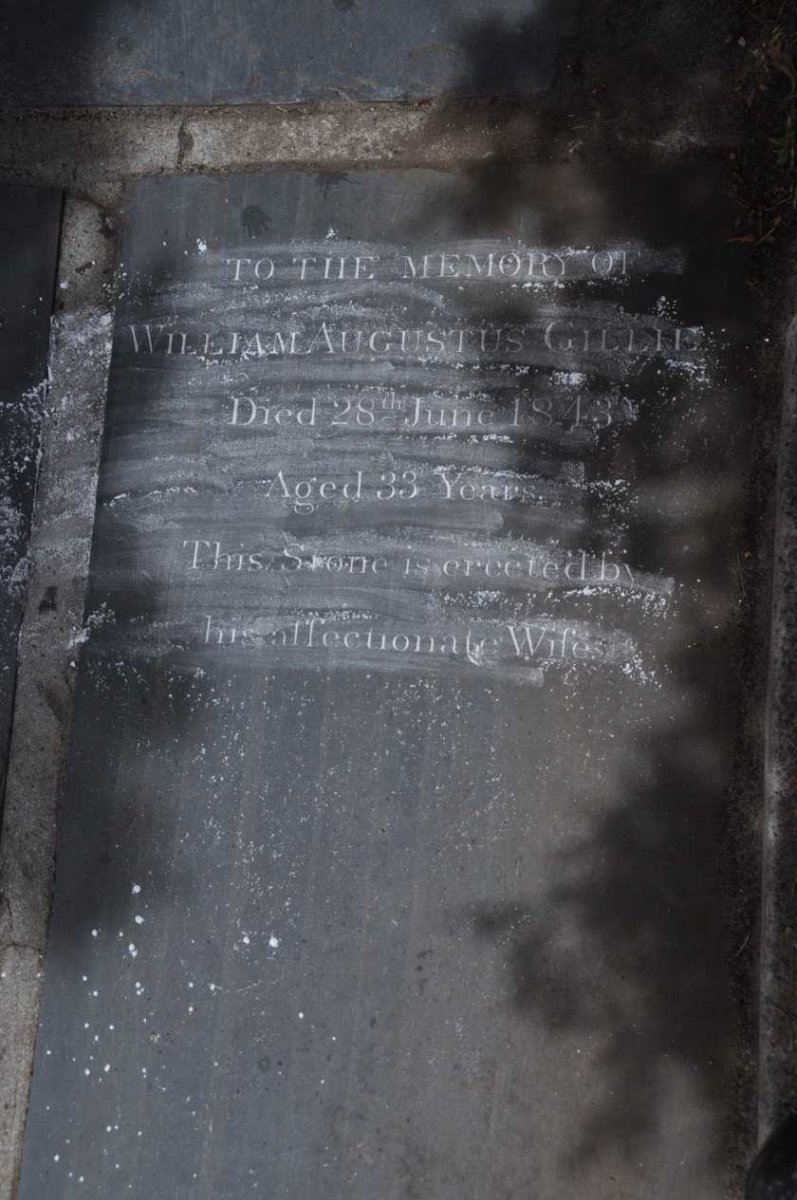 TO THE MEMORY OF
WILLIAM AUGUSTUS GILLIE
Died 28th June 1843
Aged 33 Years.
This Stone is erected by
his affectionate Wife